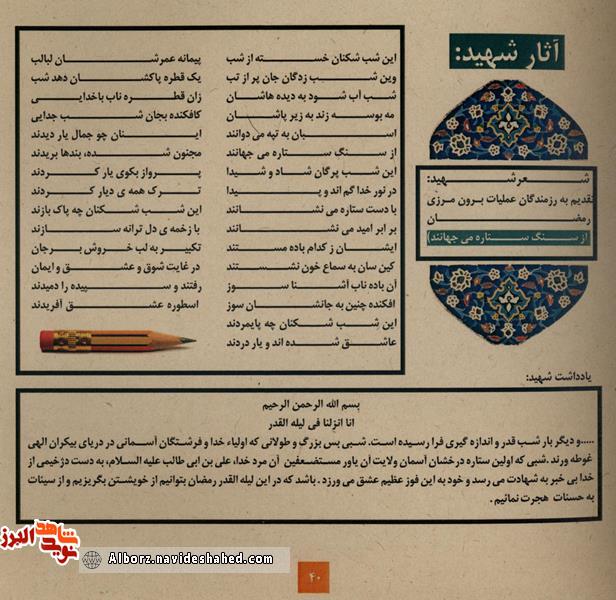 آثار شهید:
شعر شهید:
تقدیم به رزمندگان عملیات برون مرزی
رمضان
(از سنگ ستاره می جهانند)
این شب شکنان خسته از شب
پیمانه عمرشان لبالب
وین شب زدگان جان پر از تب
یک قطره پاکشان دهد شب
شب آب شود به دیده هاشان
زان قطره ناب باخدایی
مه بوسه زند به زیر پاشان
کافکنده بجان شب جدایی
اسبان به تپه می دوانند
اینان چو جمال یار دیدند
از سنگ ستاره می جهانند
مجنون شده، بندها بریدند
این شب پرگان شاد و شیدا
پرواز بکوی یار کردند
در نور خدا گم اند و پیدا
ترک همه ی دیار کردند
با دست ستاره می نشانند
این شب شکنان چه پاک بازند
بر ابر امید می نشانند
با زخمه ی دل ترانه سازند
ایشان ز کدام باده مستند
تکبیر به لب خروش بر جان
کین سان به سماع خون نشستند
در غایت شوق و عشق و ایمان
آن باده ناب آشنا سوز
رفتند و سپیده را دمیدند
افکنده چنین به جانشان سوز
اسطوره عشق آفریدند
این شب شکنان چه پایمردند
عاشق شده اند و یار دردند
یادداشت شهید:
بسم الله الرحمن الرحیم
انا انزلنا فی لیله القدر
.....و دیگر بار شب قدر و اندازه گیری فرا رسیده است. شبی بس بزرگ و طولانی که اولیاء خدا و فرشتگان آسمانی در دریای بیکران الهی
غوطه ورند. شبی که اولین ستاره درخشان آسمان ولایت آن یاور مستضعفین آن مرد خدا، علی بن ابی طالب علیه السلام، به دست دژخیمی از
خدا بی خبر به شهادت می رسد و خود به این فوز عظیم عشق می ورزد. باشد که در این لیله القدر رمضان بتوانیم از خویشتن بگریزیم و از سیئات
به حسنات هجرت نمائیم.
شاهد
نوید البرز
Alborz.navideshahed.com
۴۰